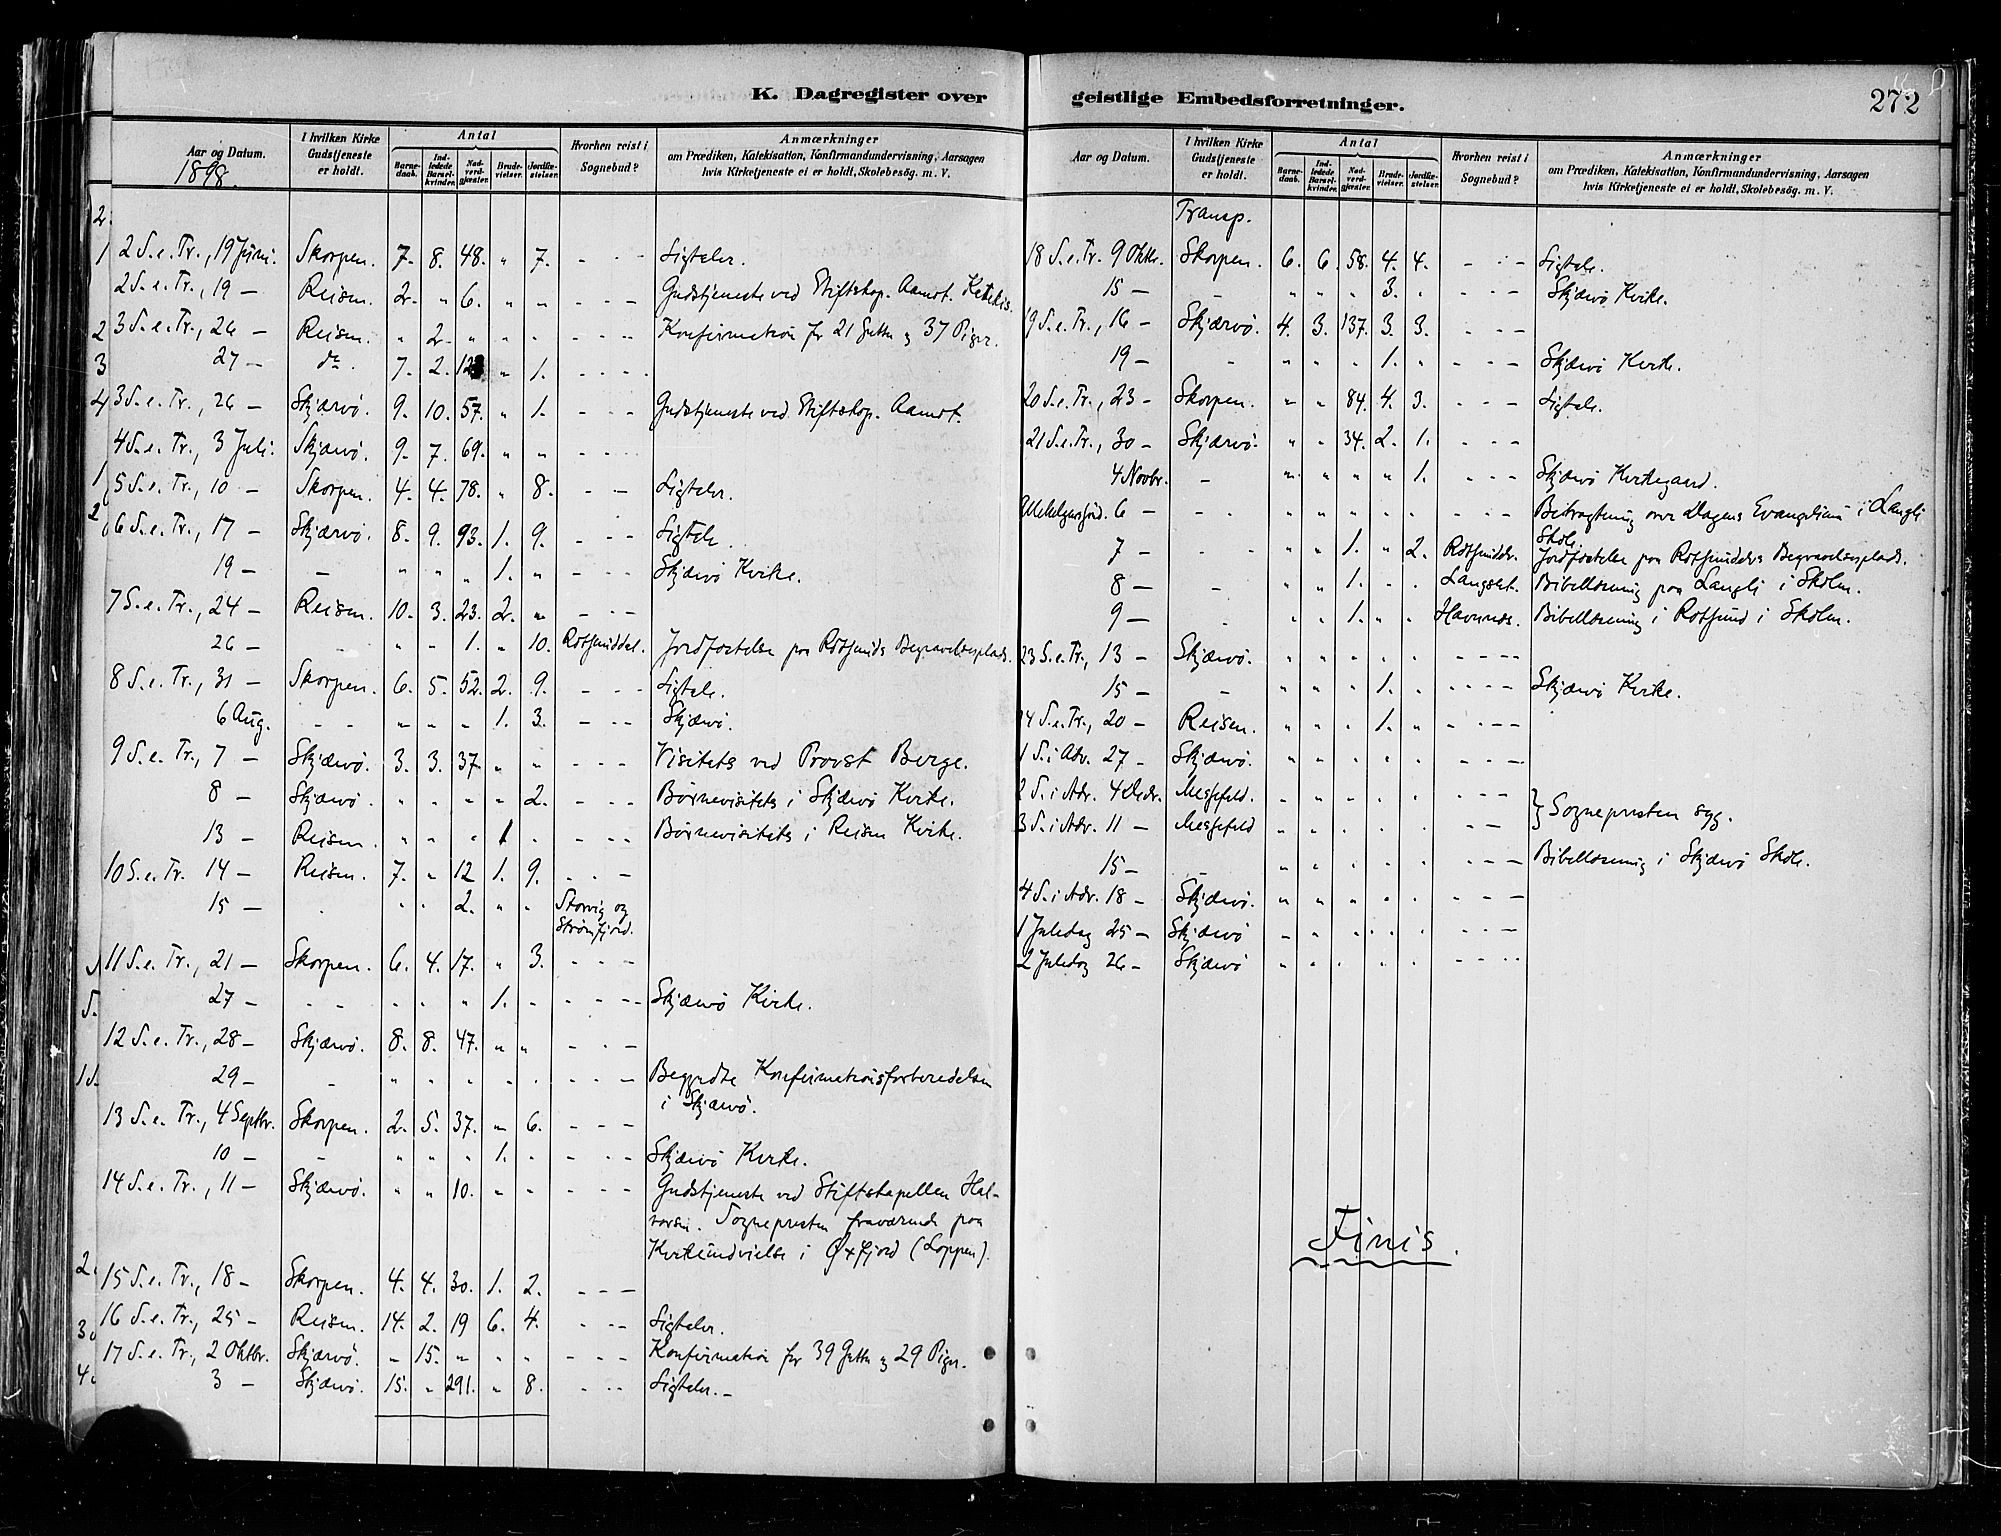 K. Dagregister over
Aar og Datum.
1898.
I hvilken Kirke Gudstjeneste er holdt.
Antal
Barnedaab.
Indledede Barselkvinder.
Nadverdgjæster.
Brudevielser.
Jordfæstelser.
Hvorhen reist i Sognebud?
Anmærkninger
om Prædiken, Katekisation, Konfirmandundervisning, Aarsagen
hvis Kirketjeneste ei er holdt, Skolebesög. m. V.
2 S. e. Tr., 19 Juni. Skorpen. 7. 8. 48. " 7. - - - Ligtaler.
2 S. e. Tr., 19 — Reisen. 2. " 6. " " - - - Gudstjeneste ved Stiftskap. Aamot. Katekis.
3 S. e. Tr., 26 — Reisen. " 2. " " " - - - Konfirmation for 21 Gutter og 37 Piger.
27 — do. 7. 2. " 1. - - -
3 S. e. Tr., 26 — Skjærvö. 9. 10. 57. " 1. - - - Gudstjeneste ved Stiftskap. Aamot.
4 S. e. Tr., 3 Juli. Skjærvö. 9. 7. 69. " " - - -
5 S. e. Tr., 10 — Skorpen. 4. 4. 78. " 8. - - Ligtaler.
6 S. e. Tr., 17 — Skjærvö. 8. 9. 93. 1. 9. - - - Ligtale.
19 — - " " " 1. " - - - Skjærvö Kirke.
7 S. e. Tr., 24 — Reisen. 10. 3. 23. 2. " - - -
26 — - " " 1. " 10. Rotsunddal. Jordfæstelse paa Rotsunds Begravelsesplads.
8 S. e. Tr., 31 — Skorpen. 6. 5. 52. 2. 9. - - - Ligtale.
6 Aug. - - " " " 1. 3. - - - Skjærvö.
9 S. e. Tr., 7 — Skjærvö. 3. 3. 37. " " - - - Visitats ved Provst Berge.
8 — Skjærvö. " " " " 2. - - - Börnevisitats i Skjærvö Kirke.
13 — Reisen. " " " 1 " - - - Börnevisitats i Reisen Kirke.
10 S. e. Tr. 14 — Reisen. 7. " 12 1. 9. - - -
15 — - " " 2. " " Storvig og
Strömfjord.
11 S. e. Tr., 21 — Skorpen. 6. 4. 17. " 3. - - -
27 — - - " " " 1. " - - - Skjærvö Kirke.
12 S. e. Tr., 28 — Skjærvö. 8. 8. 47. " " - - -
29 — - " " " " " - - - Begyndte Konfirmationsforberedelsen
i Skjærvö.
13 S. e. Tr., 4 Septbr. Skorpen. 2. 5. 37. " 6. - - -
10 — - " " " 1. " - - - Skjærvö Kirke.
14 S. e. Tr., 11 — Skjærvö. " " 10. " " - - - Gudstjeneste ved Stiftskapellan Hal-
vorsen. Sognepresten fraværende paa
Kirkeindvielse i Øxfjord (Loppen).
15 S. e. Tr., 18 — Skorpen. 4. 4. 30. 1. 2. - - -
16 S. e. Tr., 25 — Reisen. 14. 2. 19 6. 4. - - - Ligtaler.
17 S. e. Tr., 2 Oktbr. Skjærvö. " 15. " " " - - - Konfirmation for 39 Gutter og 29 Piger.
3 — Skjærvö. 15. " 291. " 8. - - - Ligtaler. —
geistlige Embedsforretninger.
272
Aar og Datum.
I hvilken Kirke Gudstjeneste er holdt.
Antal
Barnedaab.
Indledede Barselkvinder.
Nadverdgjæster.
Brudevielser.
Jordfæstelser.
Hvorhen reist i Sognebud?
Anmærkninger
om Prædiken, Katekisation, Konfirmandundervisning, Aarsagen
hvis Kirketjeneste ei er holdt, Skolebesög. m. V.
Transp.
18 S. e. Tr. 9 Oktbr. Skorpen. 6. 6. 58. 4. 4. - - - Ligtale.
15 — - " " " 3. " - - - Skjærvö Kirke.
19 S. e. Tr., 16 — Skjærvö. 4. 3. 137. 3. 3. - - -
19 — - " " " 1. " - - - Skjærvö Kirke.
20 S. e. Tr., 23 — Skorpen. " " 84. 4. 3. - - - Ligtale.
21 S. e. Tr., 30 — Skjærvö. " " 34. 2. 1. - - -
4 Novbr. - " " " " 1. - - - Skjærvö Kirkegaard.
Allehelgensfest. 6 — " " " " " - - - Betragtning over Dagens Evangelium i Langli
Skole.
7 — - " " 1. " 2. Rotsunddal. Jordfæstelse paa Rotsunddals Begravelsesplads.
8 — - " " 1. " " Langslet. Bibellæsning paa Langli i Skolen.
9 — - " " 1. " " Havnnes. Bibellæsning i Rotsund i Skolen.
23 S. e. Tr., 13 — Skjærvö. " " " " " - - - -
15 — - " " " 1. " - - - - Skjærvö Kirke.
24 S. e. Tr., 20 — Reisen. " " " 1. " - - - -
1 S. i Adv. 27 — Skjærvö. " " " " " - - - -
2 S. i Adv. 4 Decbr. Messefald. " " " " " - - -
3 S. i Adv. 11 — Messefald " " " " " - - } Sognepresten syg.
15 — - " " " " " - - - Bibellæsning i Skjærvö Skole.
4 S. i Adv. 18 — Skjærvö. " " " " " - - -
1 Juledag 25 — Skjærvö " " " " " - - -
2 Juledag 26 — Skjærvö " " " " " - - -
Finis.